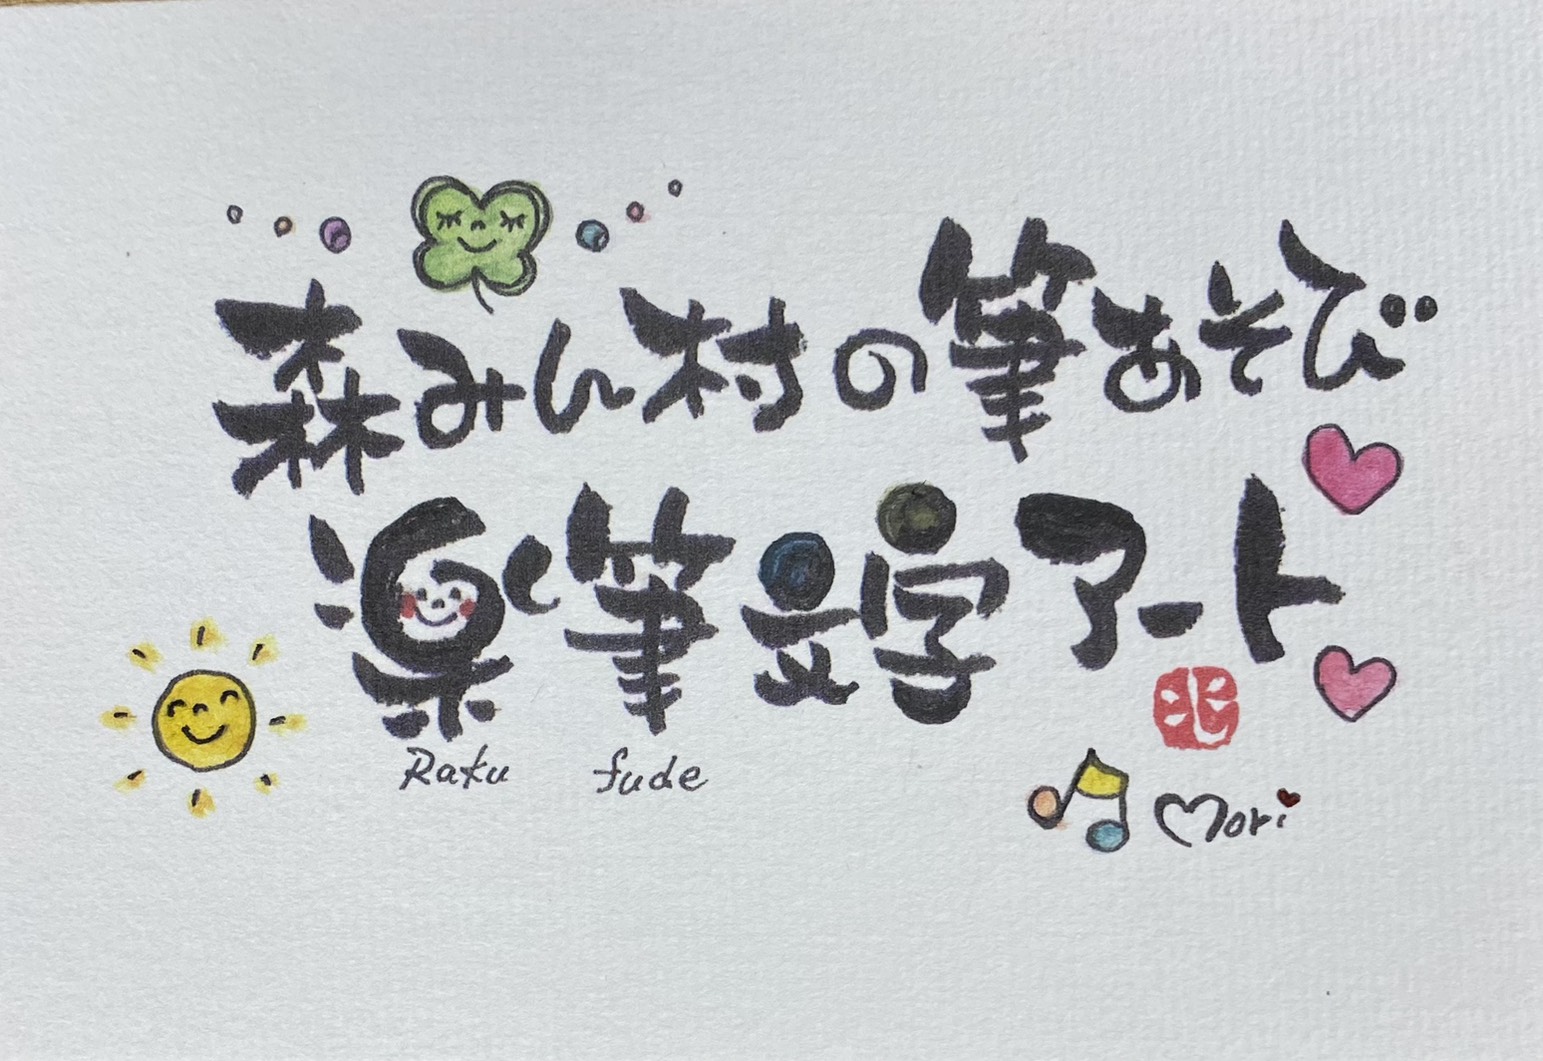 森みん村の筆あそび
楽筆文字アート
Raku fude
Mori